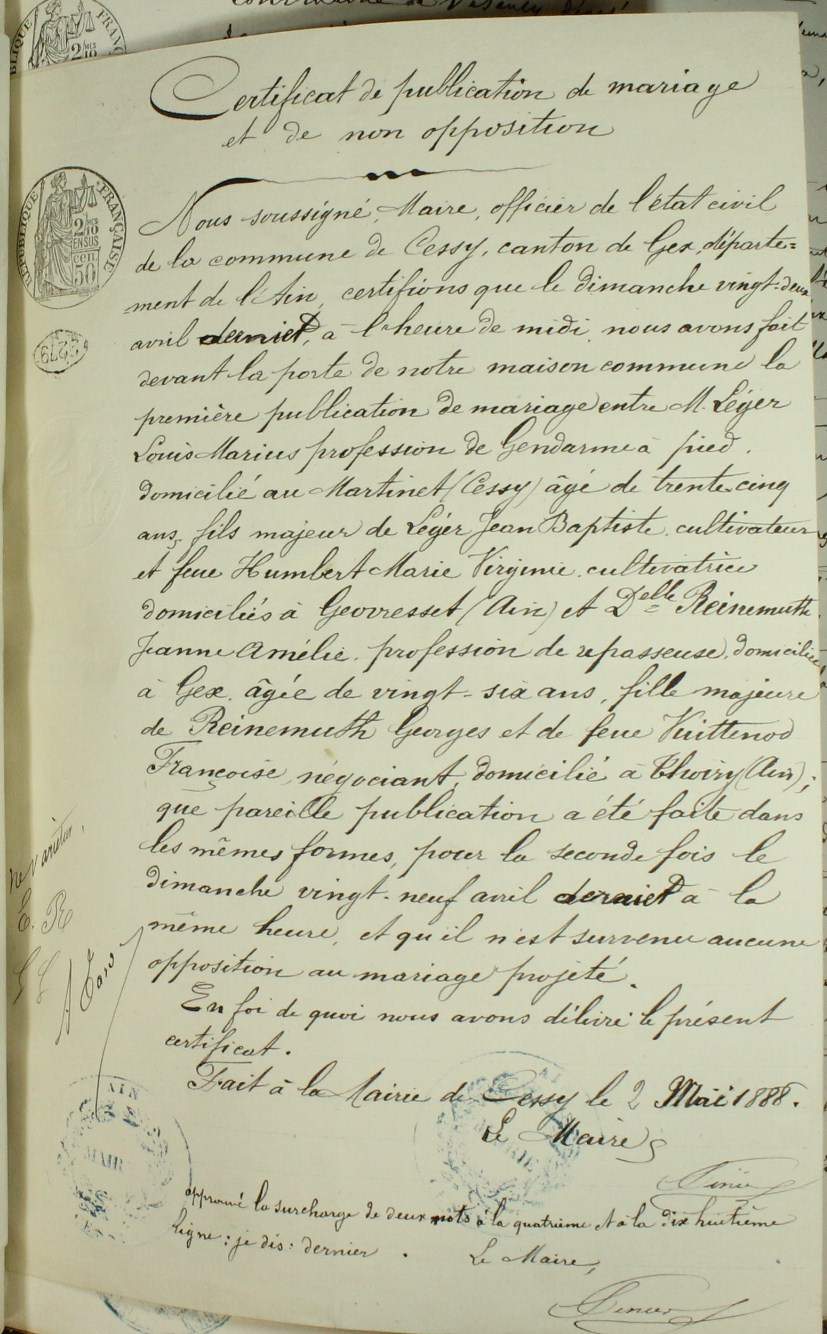 Certificat de publication de mariage
et de non opposition
Nous soussigné, Maire, officier de l'état civil
de la commune de Cessy, canton de Gex, départe=
ment de l'Ain, certifions que le dimanche vingt-deux
avril dernier, à l'heure de midi, nous avons fait
devant la porte de notre maison commune la
première publication de mariage entre M. Léger
Louis Marius profession de Gendarme à pied.
domicilié au Martinet (Cessy) âgé de trente-cinq
ans, fils majeur de Léger Jean Baptiste, cultivateur
et feue Humbert Marie Virginie, cultivatrice
domiciliés à Geovresset (Ain) et Delle Reinemuth
Jeanne Amélie, profession de repasseuse, domiciliée
à Gex, âgée de vingt-six ans, fille majeure
de Reinemuth Georges et de feue Vuittenod
Françoise, négociant, domicilié à Thoiry (Ain);
que pareille publication a été faite dans
les mêmes formes, pour la seconde fois le
dimanche vingt-neuf avril dernier à la
même heure, et qu'il n'est survenu aucune
opposition au mariage projeté.
En foi de quoi nous avons délivré le présent
certificat.
Fait à la Mairie de Cessy le 2 Mai 1888.
Le Maire
approuvé la surcharge de deux mots à la quatrième et à la dix huitième
ligne: je dis: dernier.
Le Maire,
RÉPUBLIQUE FRANÇAISE
2/10
EN SUS
50 CEN
3279
ne varietur
E. R
AIN
MAIRIE